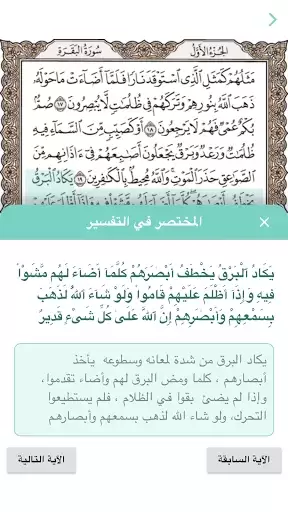 الجزء الأول
سورة البقرة
مثلهم كمثل الذي استوقد نارا فلما أضاءت ما حوله
ذهب الله بنورهم وتركهم في ظلمات لا يبصرون ١٧ صم
بكم عمي فهم لا يرجعون ١٨ أو كصيب من السماء فيه
ظلمات ورعد وبرق يجعلون أصابعهم في ءاذانهم من
الصواعق حذر الموت والله محيط بالكافرين ١٩ يكاد البرق
المختصر في التفسير
×
يَكَادُ ٱلْبَرْقُ يَخْطَفُ أَبْصَٰرَهُمْ كُلَّمَآ أَضَآءَ لَهُم مَّشَوْا۟
فِيهِ وَإِذَآ أَظْلَمَ عَلَيْهِمْ قَامُوا۟ وَلَوْ شَآءَ ٱللَّهُ لَذَهَبَ
بِسَمْعِهِمْ وَأَبْصَٰرِهِمْ إِنَّ ٱللَّهَ عَلَىٰ كُلِّ شَىْءٍ قَدِيرٌ
يكاد البرق من شدة لمعانه وسطوعه يأخذ
أبصارهم ، كلما ومض البرق لهم وأضاء تقدموا،
وإذا لم يضئ بقوا في الظلام ، فلم يستطيعوا
التحرك، ولو شاء الله لذهب بسمعهم وأبصارهم
الآية السابقة
الآية التالية